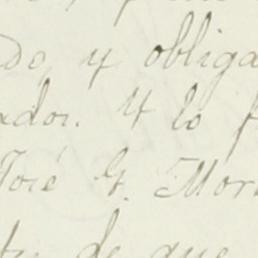 do, y obliga
ador. Y lo f
José G. Mora
de que